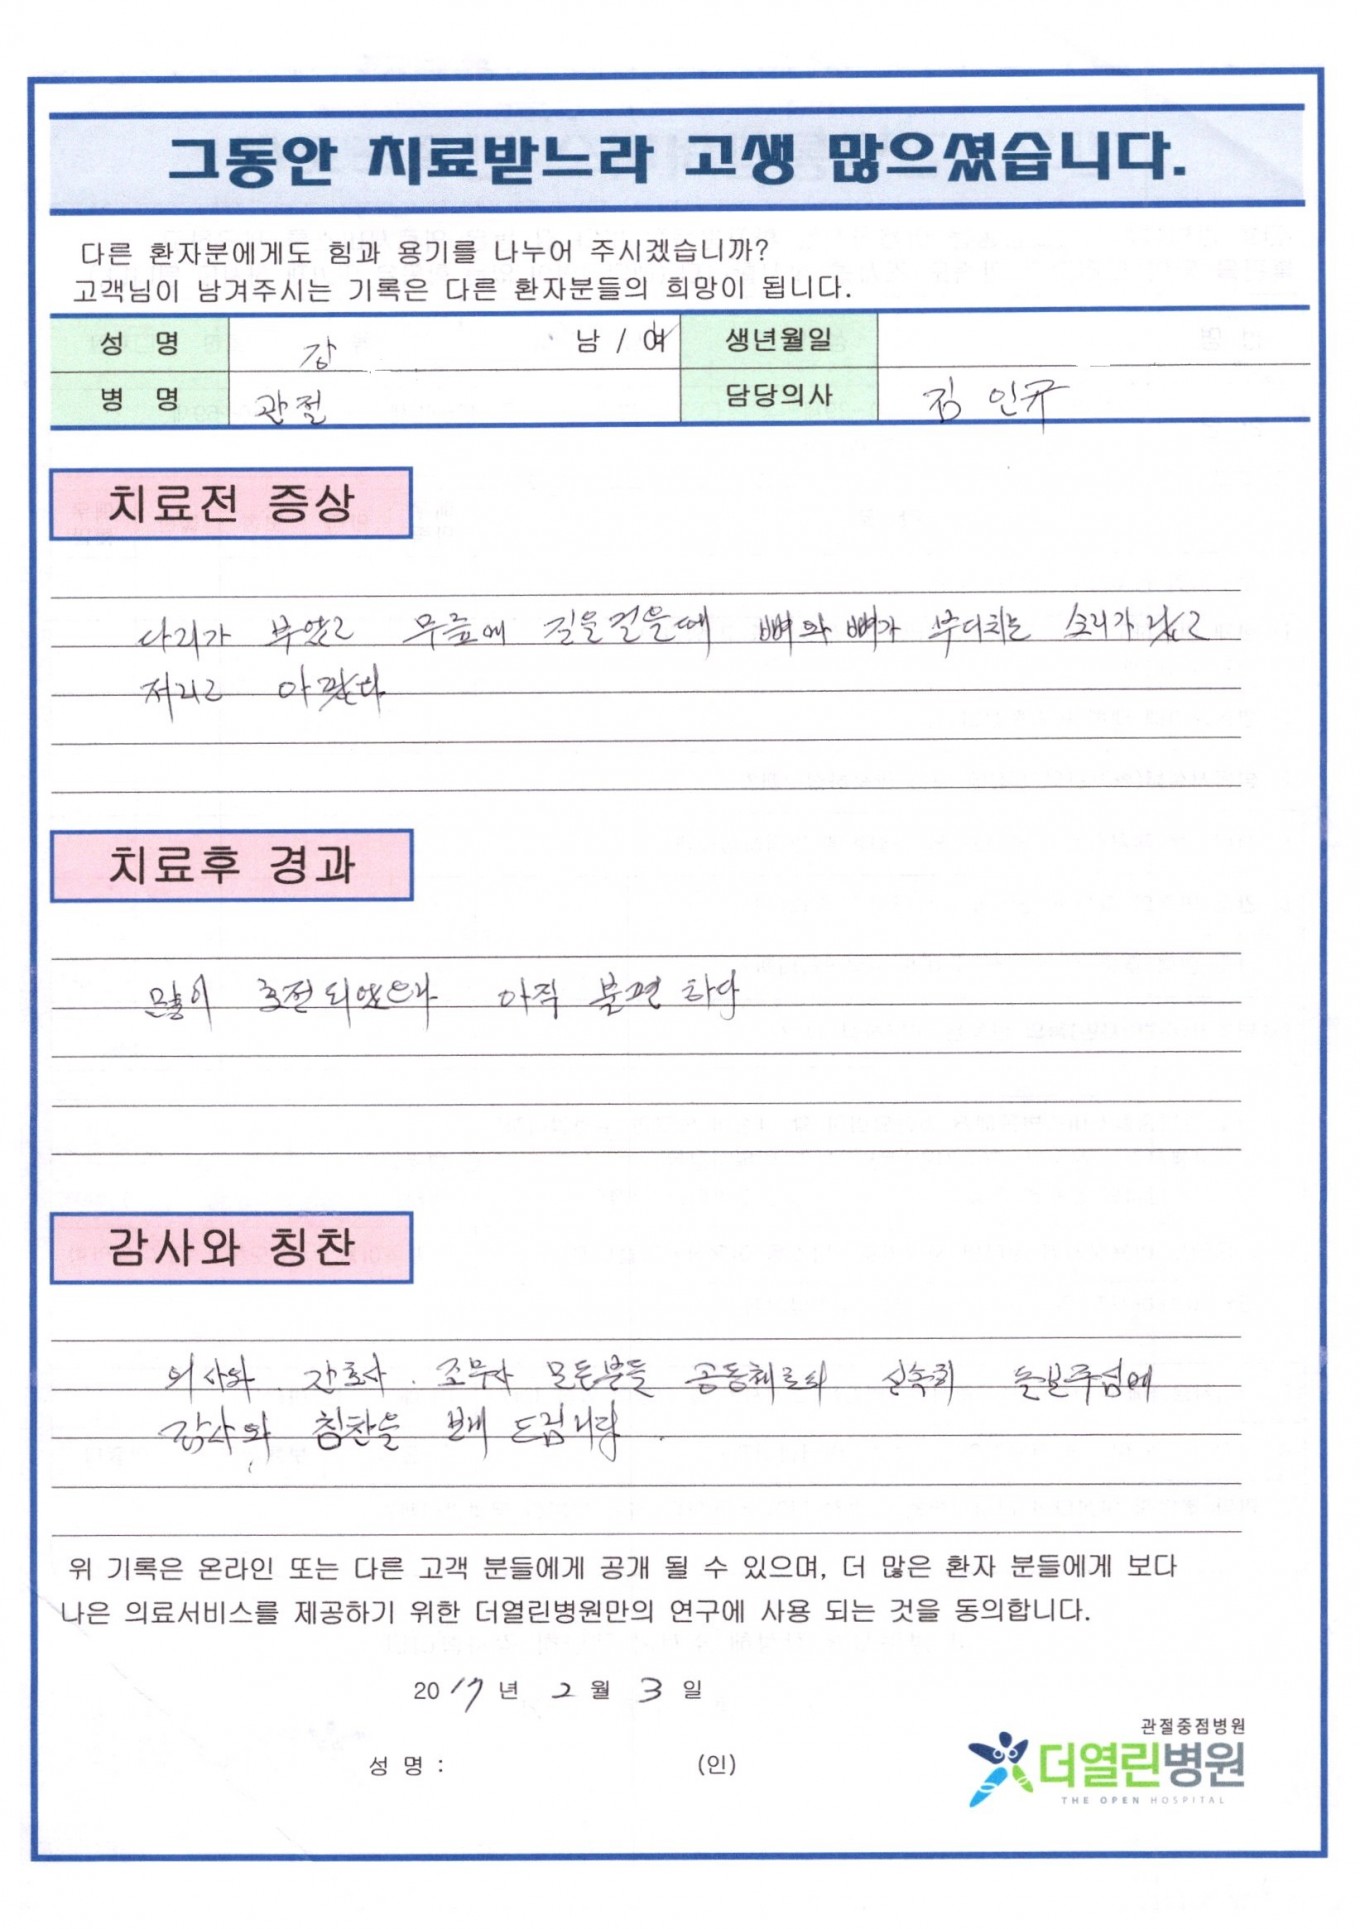 그동안 치료받느라 고생 많으셨습니다.
다른 환자분에게도 힘과 용기를 나누어 주시겠습니까?
고객님이 남겨주시는 기록은 다른 환자분들의 희망이 됩니다.
성 명 강 남 / 여 생년월일
병 명 관절 담당의사 김인규
치료전 증상
다리가 부었고 무릎에 길을걸을때 뼈와 뼈가 부디치는 소리가 났고
저리고 아팠다
치료후 경과
많이 호전되었으나 아직 불편하다
감사와 칭찬
의사와 간호사. 조무사 모든분들 공동체로써 신속히 돌보주심에
감사와 칭찬을 보내 드립니다.
위 기록은 온라인 또는 다른 고객 분들에게 공개 될 수 있으며, 더 많은 환자 분들에게 보다
나은 의료서비스를 제공하기 위한 더열린병원만의 연구에 사용 되는 것을 동의합니다.
2017년 2월 3일
성 명 : (인)
관절중점병원
더열린병원
THE OPEN HOSPITAL